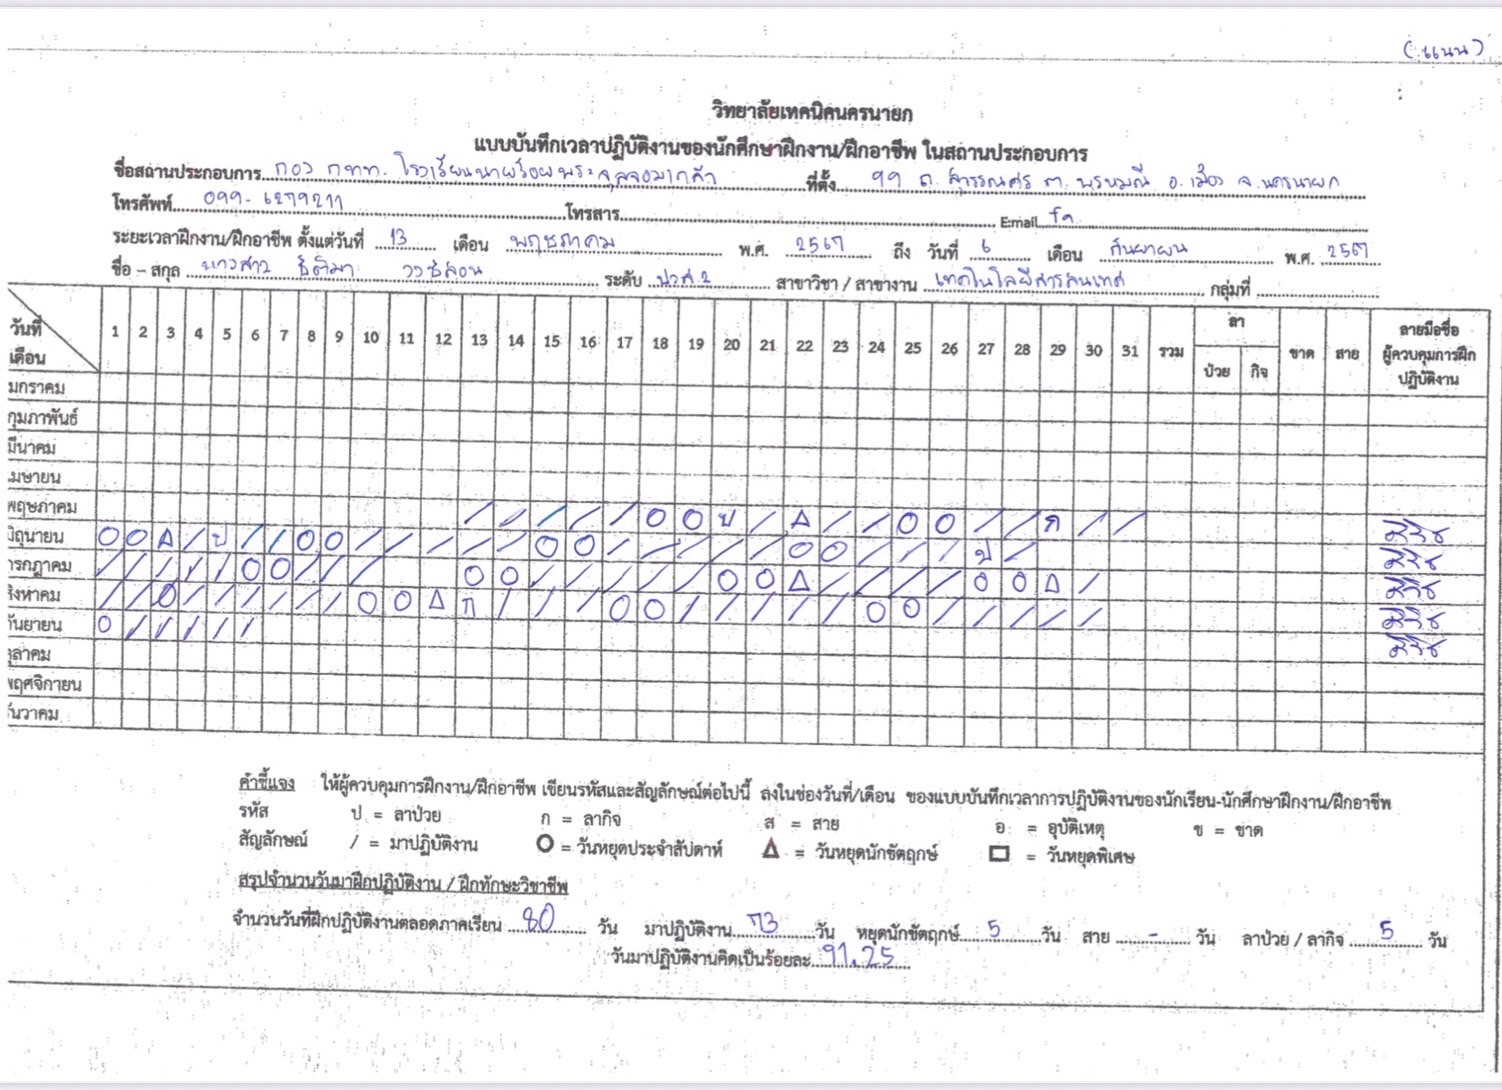 (แนน)
วิทยาลัยเทคนิคนครนายก
แบบบันทึกเวลาปฏิบัติงานของนักศึกษาฝึกงาน/ฝึกอาชีพ ในสถานประกอบการ
ชื่อสถานประกอบการ กอง กทท. โรงเรียนนายร้อยพระจุลจอมเกล้า ที่ตั้ง 99 ถ. สุวรรณศร ต. พรหมณี อ.เมือง จ.นครนายก
โทรศัพท์ 099-6279211 โทรสาร Email
ระยะเวลาฝึกงาน/ฝึกอาชีพ ตั้งแต่วันที่ 13 เดือน พฤษภาคม พ.ศ. 2567 ถึง วันที่ 6 เดือน กันยายน พ.ศ. 2567
ชื่อ – สกุล นางสาว ระดับ ปวส.2 สาขาวิชา / สาขางาน เทคโนโลยีสารสนเทศ กลุ่มที่
วันที่ เดือน 1 2 3 4 5 6 7 8 9 10 11 12 13 14 15 16 17 18 19 20 21 22 23 24 25 26 27 28 29 30 31 รวม ลา ป่วย กิจ ขาด สาย ลายมือชื่อ ผู้ควบคุมการฝึก ปฏิบัติงาน
มกราคม
กุมภาพันธ์
มีนาคม
เมษายน
พฤษภาคม / / / / / O O ป / Δ / / O O / / ก / /
มิถุนายน O O Δ / ป / / O O / / / / / O O / / / / / O O / / / ป /
กรกฎาคม / / / / / O O / / / O O / / / / / / O O Δ / / / / O O Δ /
สิงหาคม / / O / / / / / / O O Δ ก / / / O O / / / / / O O / / / / /
กันยายน O / / / / /
ตุลาคม
พฤศจิกายน
ธันวาคม
คำชี้แจง ให้ผู้ควบคุมการฝึกงาน/ฝึกอาชีพ เขียนรหัสและสัญลักษณ์ต่อไปนี้ ลงในช่องวันที่/เดือน ของแบบบันทึกเวลาการปฏิบัติงานของนักเรียน-นักศึกษาฝึกงาน/ฝึกอาชีพ
รหัส ป = ลาป่วย ก = ลากิจ ส = สาย อ = อุบัติเหตุ ข = ขาด
สัญลักษณ์ / = มาปฏิบัติงาน O = วันหยุดประจำสัปดาห์ Δ = วันหยุดนักขัตฤกษ์ □ = วันหยุดพิเศษ
สรุปจำนวนวันมาฝึกปฏิบัติงาน / ฝึกทักษะวิชาชีพ
จำนวนวันที่ฝึกปฏิบัติงานตลอดภาคเรียน 80 วัน มาปฏิบัติงาน 73 วัน หยุดนักขัตฤกษ์ 5 วัน สาย - วัน ลาป่วย / ลากิจ 5 วัน
วันมาปฏิบัติงานคิดเป็นร้อยละ 91.25